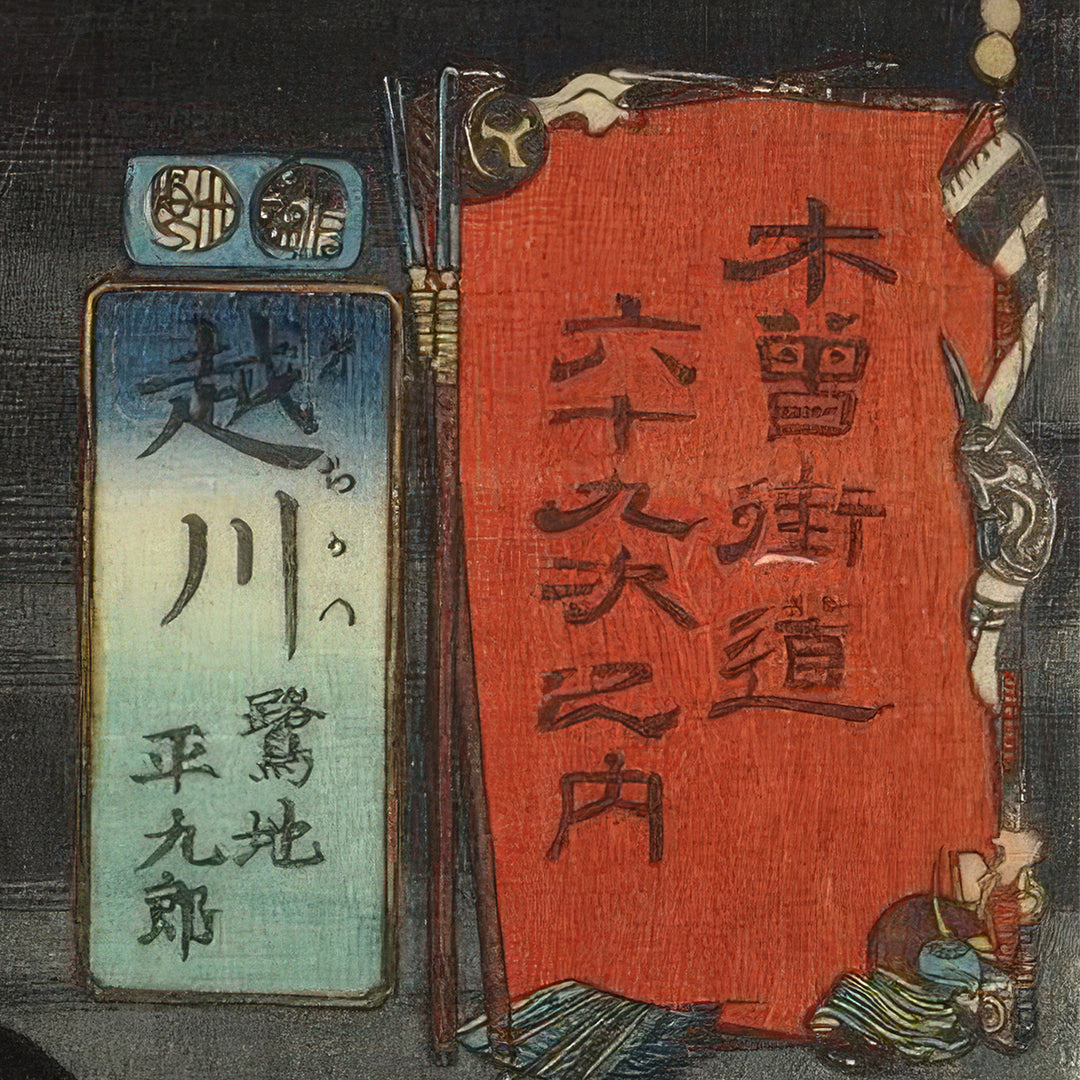 木曽街道
六十九次之内
越川
鷺地
平九郎